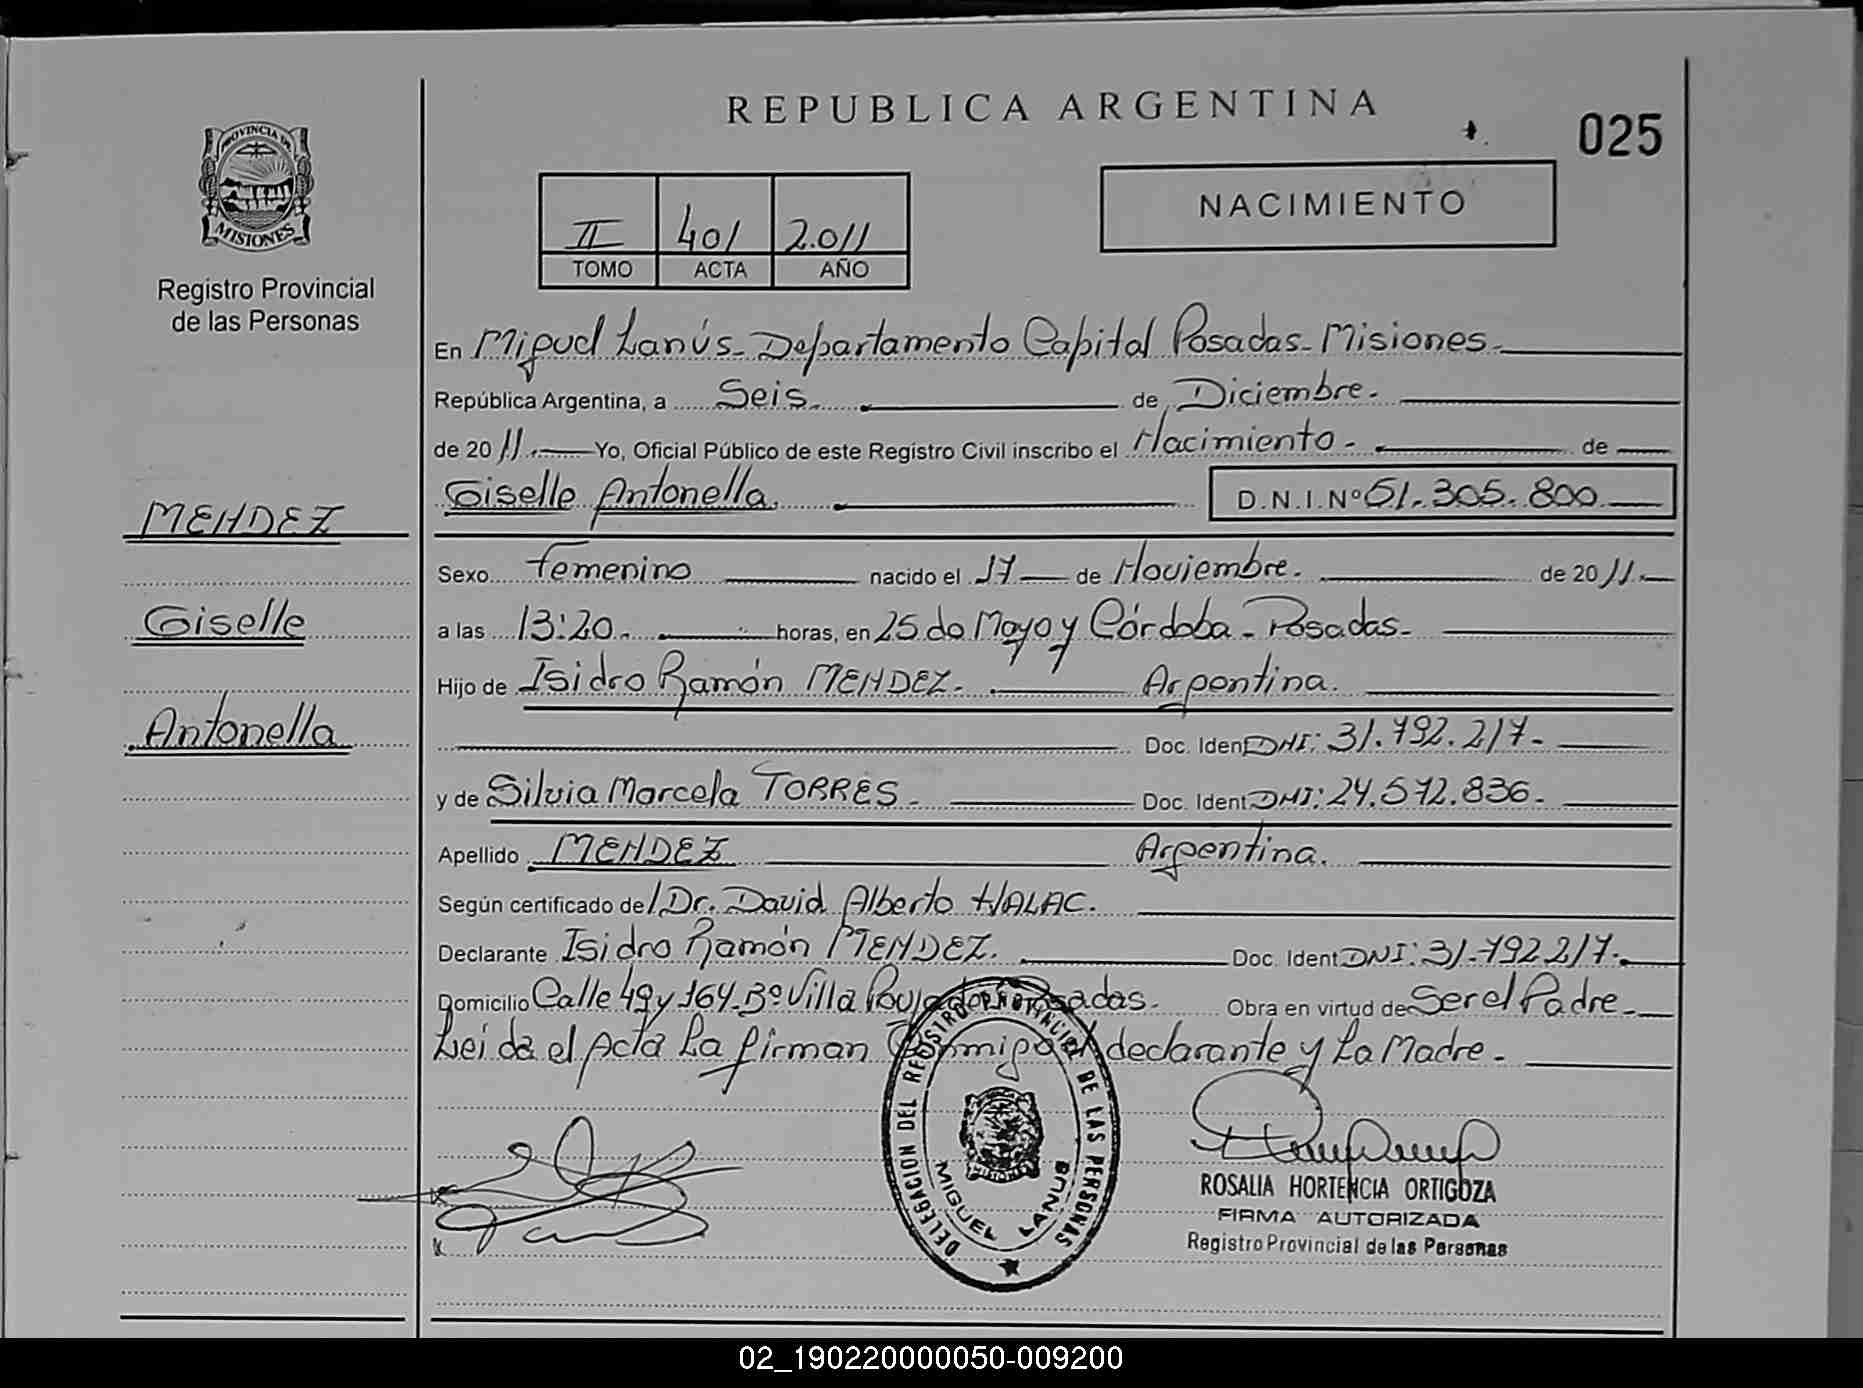 REPUBLICA ARGENTINA
025
PROVINCIA DE
MISIONES
Registro Provincial
de las Personas
NACIMIENTO
II 401 2.011
TOMO ACTA AÑO
En Miguel Lanús - Departamento Capital Posadas - Misiones -
República Argentina, a Seis - de Diciembre -
de 2011 - Yo, Oficial Público de este Registro Civil inscribo el Nacimiento - de
Giselle Antonella. D.N.I.Nº 51.305.800
MENDEZ
Giselle
Antonella
Sexo Femenino nacido el 17 de Noviembre. de 2011.
a las 13:20 - horas, en 25 de Mayo y Córdoba - Posadas -
Hijo de Isidro Ramón MENDEZ - Argentina.
Doc. Ident DNI: 31.792.217 -
y de Silvia Marcela TORRES - Doc. Ident DNI: 24.572.836 -
Apellido MENDEZ Argentina.
Según certificado del Dr. David Alberto HALAC.
Declarante Isidro Ramón MENDEZ. Doc. Ident DNI: 31.792 217 -
Domicilio Calle 49 y 164 - Bº Villa Posadas - Obra en virtud de Ser el Padre -
Leida el Acta La firman Conmigo el declarante y La Madre -
DELEGACION DEL REGISTRO PROVINCIAL DE LAS PERSONAS
MIGUEL LANUS
ROSALIA HORTENCIA ORTIGOZA
FIRMA AUTORIZADA
Registro Provincial de las Personas
02_190220000050-009200